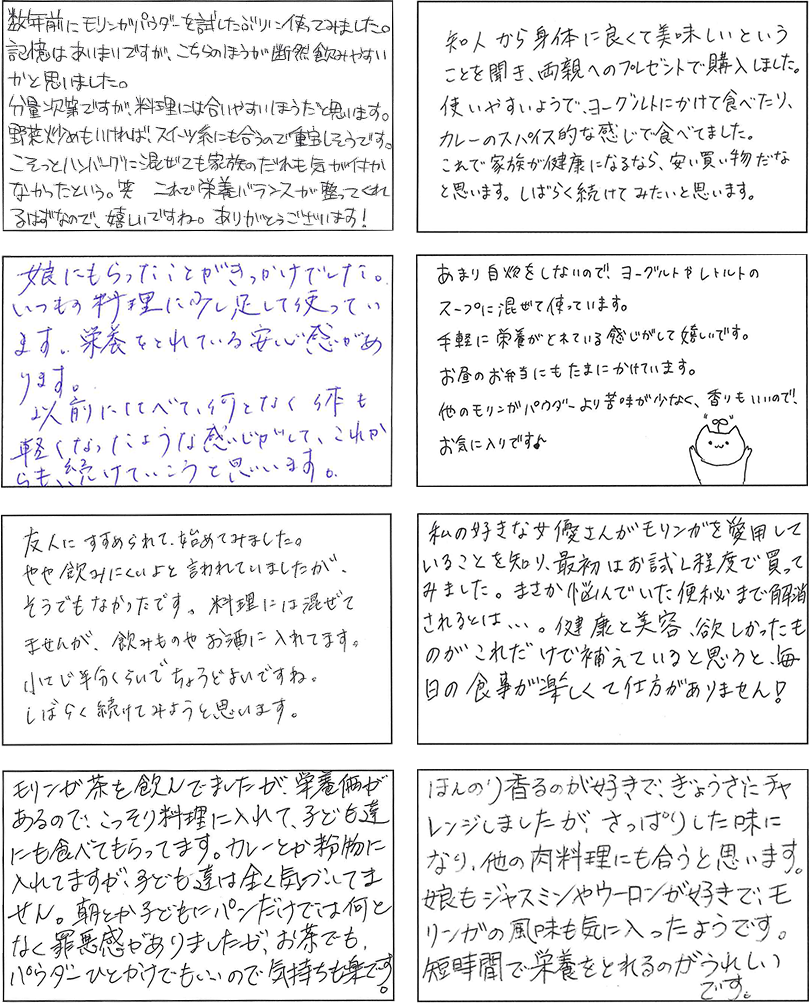 数年前にモリンガパウダーを試したぶりに使ってみました。
記憶はあいまいですが、こちらのほうが断然飲みやすい
かと思いました。
分量次第ですが、料理には合いやすいほうだと思います。
野菜炒めもいければ、スイーツ系にも合うので重宝しそうです。
こそっとハンバーグに混ぜても家族のだれも気が付か
なかったという。笑 これで栄養バランスが整ってくれ
るはずなので、嬉しいですね。ありがとうございます!
知人から身体に良くて美味しいという
ことを聞き、両親へのプレゼントで購入しました。
使いやすいようで、ヨーグルトにかけて食べたり、
カレーのスパイス的な感じで食べてました。
これで家族が健康になるなら、安い買い物だな
と思います。しばらく続けてみたいと思います。
娘にもらったことがきっかけでした。
いつもの料理に少し足して使ってい
ます。栄養をとれている安心感があ
ります。
以前にくらべて、何となく体も
軽くなったような感じがして、これか
らも、続けていこうと思います。
あまり自炊をしないので、ヨーグルトやレトルトの
スープに混ぜて使っています。
手軽に栄養がとれている感じがして嬉しいです。
お昼のお弁当にもたまにかけています。
他のモリンガパウダーより苦味が少なく、香りもいいので!
お気に入りです♪
友人にすすめられて、始めてみました。
やや飲みにくいよと言われていましたが、
そうでもなかったです。料理には混ぜて
ませんが、飲みものやお酒に入れてます。
小さじ半分くらいでちょうどよいですね。
しばらく続けてみようと思います。
私の好きな女優さんがモリンガを愛用して
いることを知り、最初はお試し程度で買って
みました。まさか悩んでいた便秘まで解消
されるとは...。健康と美容、欲しかったも
のがこれだけで補えていると思うと、毎
日の食事が楽しくて仕方がありません!
モリンガ茶を飲んでましたが、栄養価が
あるので、こっそり料理に入れて、子ども達
にも食べてもらってます。カレーとか粉物に
入れてますが、子ども達は全く気づいてま
せん。朝とか子どもにパンだけでは何と
なく罪悪感がありましたが、お茶でも、
パウダーひとかけでもいいので気持ちも楽です。
ほんのり香るのが好きで、ぎょうざにチャ
レンジしましたが、さっぱりした味に
なり、他の肉料理にも合うと思います。
娘もジャスミンやウーロンが好きで、モ
リンガの風味も気に入ったようです。
短時間で栄養をとれるのがうれしい
です。